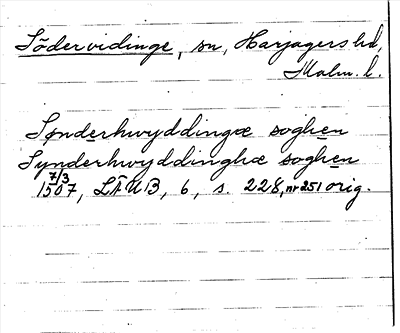 Södervidinge, sn, Harjagers hd,
Malm. l.
Sønderhwyddingæ soghen
Synderhwyddinghæ soghen
7/3
1507, LÄUB, 6, s. 228, nr 251 orig.